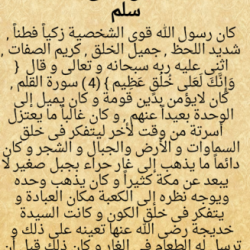 سلم
كان رسول الله قوى الشخصية زكياً فطناً ,
شديد اللحظ , جميل الخلق , كريم الصفات ,
اثنى عليه ربه سبحانه و تعالى و قال {
وَإِنَّكَ لَعَلَى خُلُقٍ عَظِيمٍ } (4) سورة القلم ,
كان لايؤمن بدين قومة و كان يميل إلى
الوحدة بعيداً عنهم , و كان غالباً ما يعتزل
أسرتة من وقت لأخر ليتفكر فى خلق
السماوات و الأرض والجبال و الشجر و كان
دائماً ما يذهب إلى غار حراء بجبل صغير لا
يبعد عن مكة كثيراً و كان يذهب وحده
ويوجه نظره إلى الكعبة مكان العبادة و
يتفكر فى خلق الكون و كانت السيدة
خديجة رضي الله عنها تعينه على ذلك و
ترسل له الطعام فى الغار و كان ذلك قبل أن